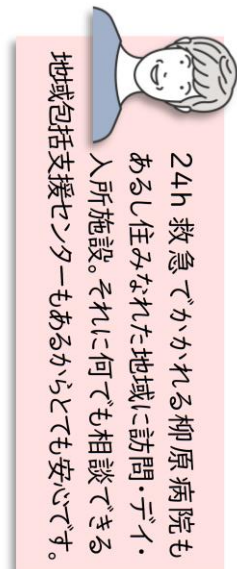 24h 救急でかかれる柳原病院も
あるし住みなれた地域に訪問・デイ・
入所施設。それに何でも相談できる
地域包括支援センターもあるからとても安心です。